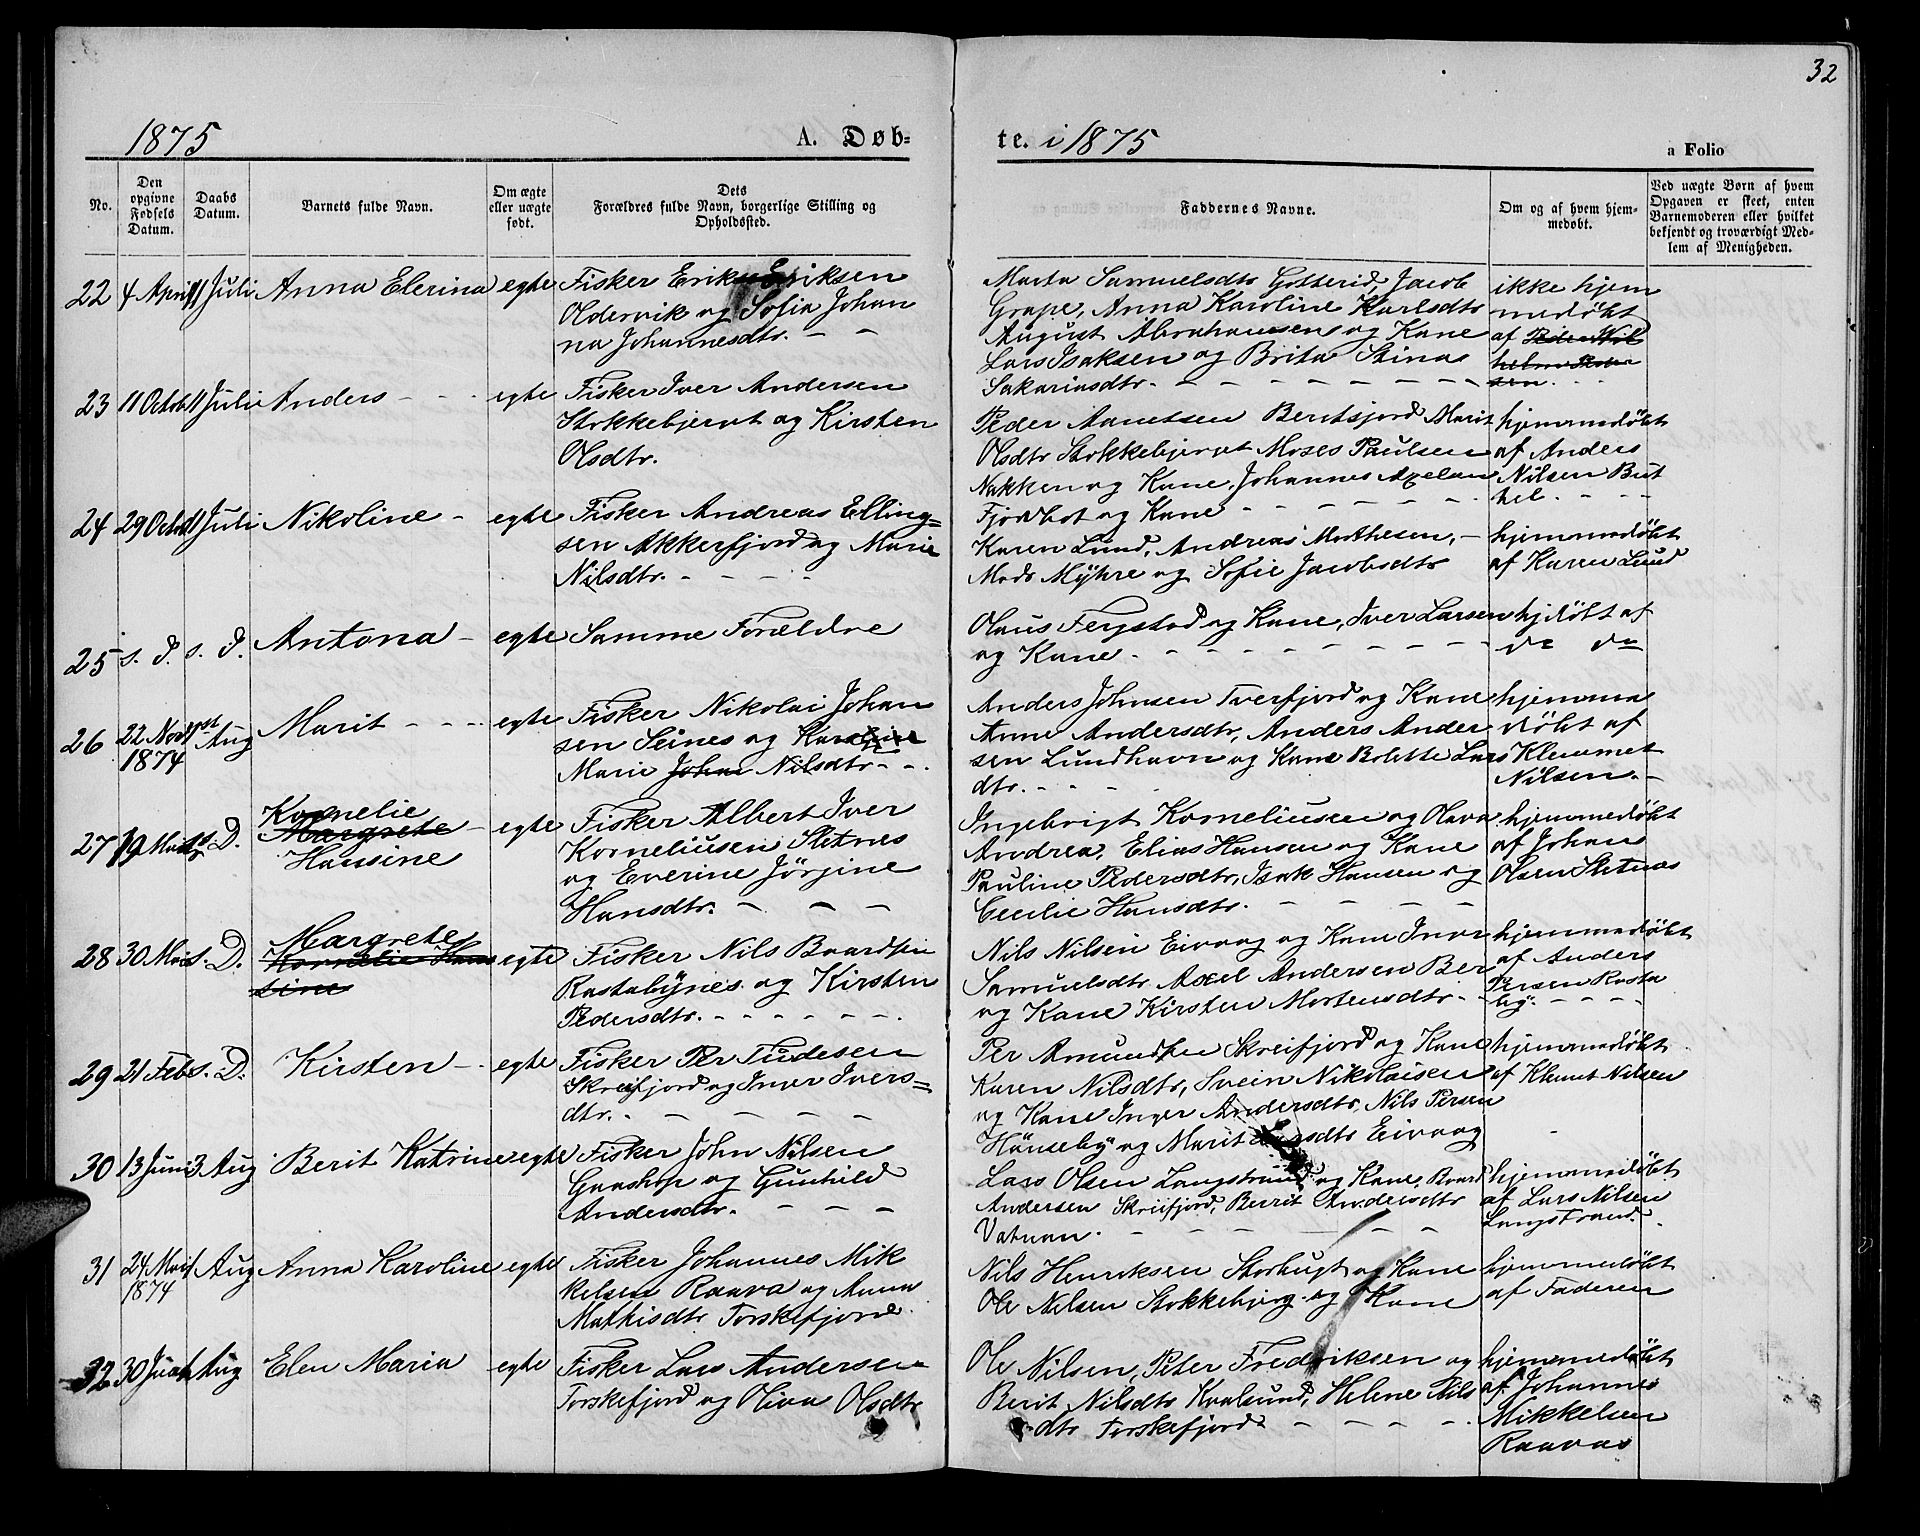 32
1875 A. Døb-
te. i 1875
a Folio
No.
Den opgivne Fødsels Datum.
Daabs Datum.
Barnets fulde Navn.
Om ægte eller uægte født.
Dets Forældres fulde Navn, borgerlige Stilling og Opholdssted.
Faddernes Navne.
Om og af hvem hjem-
medøbt.
Ved uægte Børn af hvem
Opgaven er skeet, enten
Barnemoderen eller hvilket
bekjendt og troværdigt Med-
lem af Menigheden.
22 4 April 11 Juli Anna Elerina egte Fisker Erik Eriksen
Oldervik og Sofia Johan
na Johannesdtr. - -
Marta Samuelsdtr Gotterid, Jacob
Grape, Anna Karoline Karlsdtr
August Abrahamsen og Kane
Lars Isaksen og Brita Stina
Sakariasdtr. - - - -
ikke hjem
medøbt
af Peder Wil
helm
sen. - -
23 11 Octob 11 Juli Anders - - - egte Fisker Iver Andersen
Stokkebjerget og Kirsten
Olsdtr.
Peder Anetsen Beritsjord Marit
Olsdtr Stokkebjerget Moses Paulsen
Nakken og Kane, Johannes
Fjordbot og Kane - - - -
hjemmedøbt
af Anders
Nilsen But
hel. - - -
24 29 Octob 11 Juli Nikoline - egte Fisker Andreas Elling-
sen Akkerfjord og Marie
Nilsdtr. - - - -
Karen Lund, Andreas Morthesen, -
Mads Myhre og Sofie Jacobsdtr
hjemmedøbt
af Karen Lund
25 s. d. s. d. Antona - egte Samme Forældre
Olaus Fergstad og Kane, Iver Larsen
og Kane. - - - - -
hjdøbt af
do do
26 22 Nov 1874 1st Aug Marit - - - egte Fisker Nikolai Johan
sen Seines og Karoline
Marie Johan Nilsdtr - -
Anders Johnsen Tverfjord og Kane
Anne Andersdtr, Anders Ander
sen Lundhavn og Kane Bolette Lars
dtr. - - -
hjemma
døbt af
Klemmet
Nilsen. -
27 19 Marts s. D. Kornelie
Margrete
Hansine - egte Fisker Albert Iver
Korneliusen Sletnes
og Everine Jørgine
Hansdtr. - - -
Ingebrigt Korneliusen og Olava
Andrea, Elias Hansen og Kane
Pauline Pedersdtr, Isak Hansen og
Cecilie Hansdtr. - - - -
hjemmedøbt
af Johans
Olsen Sletnæs
28 30 Mai s. D. Margrete
Kornelie Han
sine egte Fisker Nils Baardsen
Rastabynes og Kirsten
Pedersdtr. - - - - -
Nils Nilsen Eivaag og Kane Inor
Samuelsdtr. Axel Andersen Ber
og Kane Kirsten Mortensdtr. - -
hjemmedøbt
af Anders
Persen Rasta
by. - - -
29 21 Feb s. D. Kirsten - - egte Fisker Per Tudesen
Skreifjord og Inor Ivers-
dtr. - - - -
Per Amundsen Skreifjord og Kane
Karen Nilsdtr, Svein Nikolaisen
og Kane Inger Andersdtr, Nils Persen
Hönseby og Marit Larsdtr Eivaag
hjemmedøbt
af Klemet Nilsen
-
30 13 Juni 3 Aug Berit Katrine egte Fisker John Nilsen
Gaashop og Gunhild
Andersdtr. - - -
Lars Olsen Langstrand og Kane, Baard
Andersen Skreifjord, Berit Andersdtr
Vatnan. - - - -
hjemmedøbt
af Lars Nilsen
Langstrand.
31 24 Mai 1874 1 Aug Anna Karoline egte Fisker Johannes Mik
kelsen Raava og Anna
Mathisdtr Torskefjord.
Nils Henriksen Storbugt og Kane
Ole Nilsen Stokkebjerg og Kane
hjemmedøbt
af Faderen
32 30 Juni 1 Aug Elen Maria - egte Fisker Lars Andersen
Torskefjord og Oliva Olsdtr
Ole Nilsen, Peter Fredriksen og
Berit Nilsdtr Kvalsund, Helene Nils
dtr Torskefjord - - - -
hjemmedøbt
af Johannes
Mikkelsen
Raavas